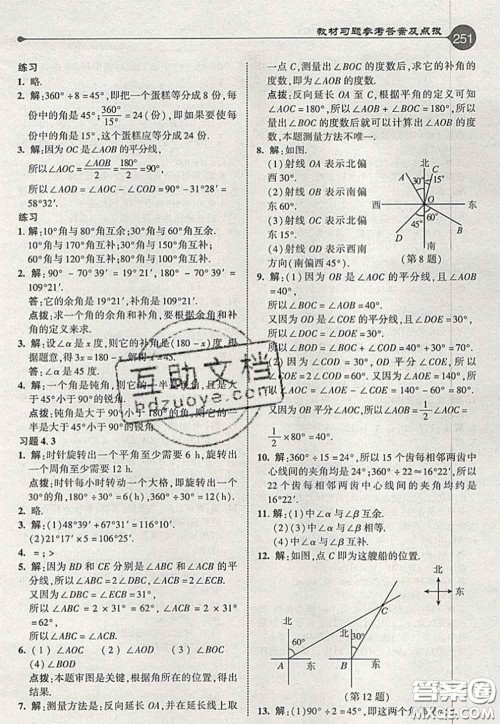 教材习题参考答案及点拨 251
练习
1. 略.
2. 解:360°÷8=45°,即把一个蛋糕等分成8份,每份中的角是45°;360°/15°=24(份),即如果要使每份中的角是15°,这个蛋糕应等分成24份.
3. 解:因为OC是∠AOB的平分线,
所以∠AOC=∠AOB/2=180°/2=90°,
所以∠AOD=∠AOC-∠COD=90°-31°28′=
58°32′.
练习
1. 解:10°角与80°角互余;30°角与60°角互余.
10°角与170°角互补;30°角与150°角互补;
60°角与120°角互补;80°角与100°角互补.
2. 解:90°-70°39′=19°21′,180°-70°39′=109°21′.
答:它的余角是19°21′,补角是109°21′.
点拨:求一个角的余角和补角,根据余角和补角的定义来求.
3. 解:设∠α是x度,则它的补角是(180-x)度,根据题意,得3x=180-x.解得x=45.
答:∠α是45度.
4. 解:一个角是钝角,则它的一半是锐角.
点拨:钝角是大于90°小于180°的角,则它的一半是大于45°小于90°的锐角.
习题4.3
1. 解:时针旋转出一个平角至少需要6 h,旋转出一个周角至少需要12 h.
点拨:时针每小时转动一个大格,即旋转出一个30°的角,180°÷30°=6,360°÷30°=12.
2. 略.
3. 解:(1)48°39′+67°31′=116°10′.
(2)21°17′×5=106°25′.
4. =;>
5. 解:因为BD和CE分别是∠ABC和∠ACB的平分线,所以∠ABC=2∠DBC,∠ACB=2∠ECB.
又因为∠DBC=∠ECB=31°,
所以∠ABC=2×31°=62°,∠ACB=2×31°=62°,所以∠ABC=∠ACB.
6. 解:(1)∠AOC (2)∠AOD (3)∠BOC
(4)∠BOD
点拨:本题审图是关键,根据角所在的位置,求出结果.
7. 解:测量方法是:反向延长∠AOB的边线上取
一点C,测量出∠BOC的度数后,求它的补角的度数,即为∠AOB的度数.
点拨:反向延长AO至C,根据平角的定义可知∠AOB+∠BOC=180°,∠AOB=180°-∠BOC,所以量出∠BOC的度数后就可以得出∠AOB的度数,本题测量方法不唯一.
8. 解:如图.
(1)射线OA表示北偏西30°.
(2)射线OB表示南偏东60°.
(3)射线OC表示北偏东15°.
(4)射线OD表示西南方向(南偏西45°).
北 A C 30° 15° 西 O 东 60° 45° B D 南
(第8题)
9. 解:(1)因为OB是∠AOC的平分线,且∠AOB=40°,
所以∠BOC=∠AOB=40°.
因为OD是∠COE的平分线,且∠DOE=30°,
所以∠COD=∠DOE=30°,
所以∠BOD=∠BOC+∠COD=40°+30°=70°.
(2)因为OD是∠COE的平分线,且∠COD=30°,
所以∠COE=2∠COD=2×30°=60°,
所以∠AOC=∠AOE-∠COE=140°-60°=80°.
又因为OB是∠AOC的平分线,所以∠AOB=
1/2×80°=40°.
10. 解:360°÷15=24°,所以齿轮有15个齿时,每相邻两齿中心线间的夹角为24°;360°÷22≈16°22′,所以齿轮有22个齿时,每相邻两齿中心线间的夹角约是16°22′.
11. 解:(1)中∠α与∠β互余.
(2)(3)中∠α与∠β互补.
12. 解:如图,点C即为这艘船的位置.
北 东 C 60° 30° A 东 B 东
(第12题)
13. 解:(1)90°÷2=45°,即这两个角都是45°.
互助文档
hdzuoye.com
答案圈
MXQE.COM